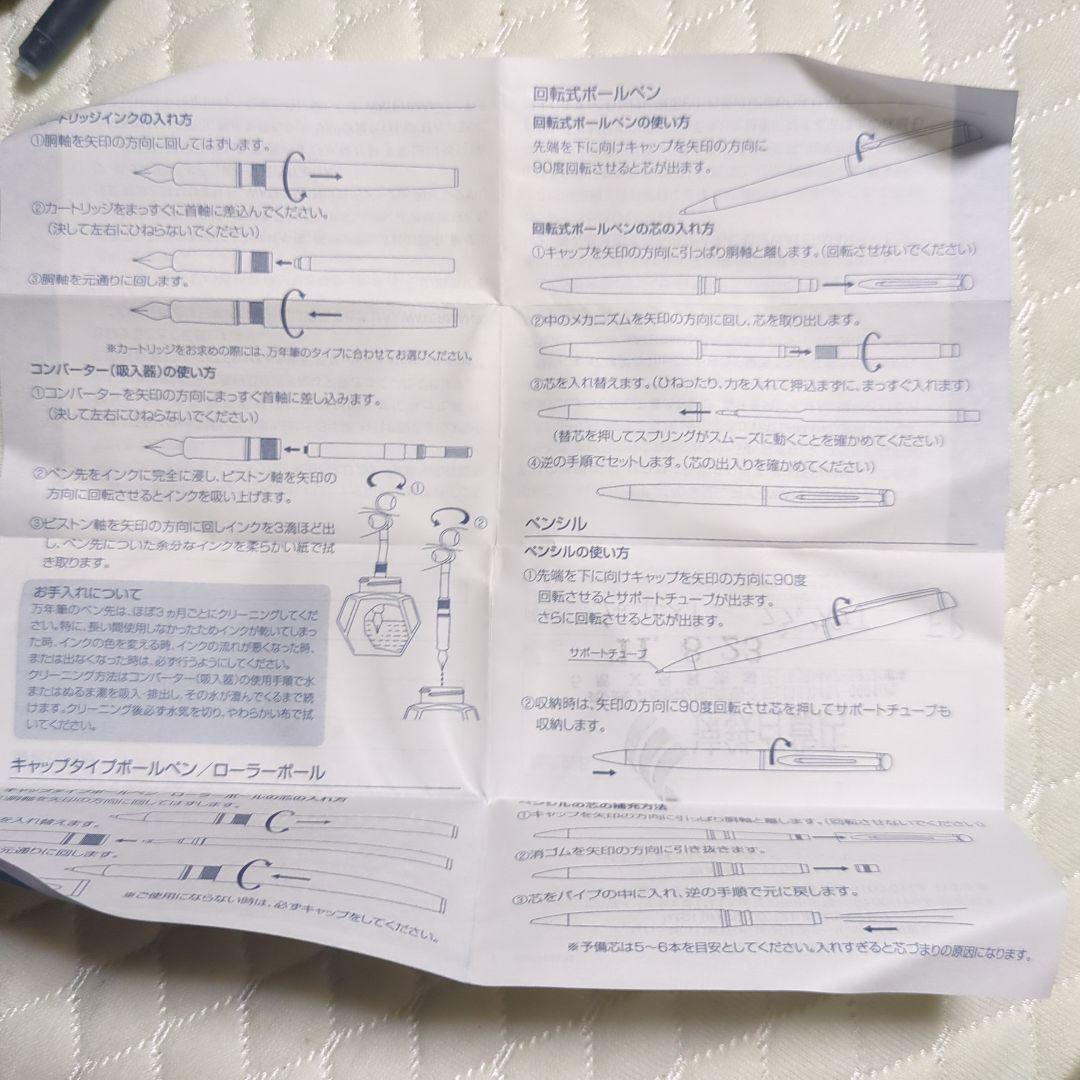 カートリッジインクの入れ方
①胴軸を矢印の方向に回してはずします。
②カートリッジをまっすぐに首軸に差込んでください。
（決して左右にひねらないでください）
③胴軸を元通りに回します。
※カートリッジをお求めの際には、万年筆のタイプに合わせてお選びください。
コンバーター（吸入器）の使い方
①コンバーターを矢印の方向にまっすぐ首軸に差し込みます。
（決して左右にひねらないでください）
②ペン先をインクに完全に浸し、ピストン軸を矢印の
方向に回転させるとインクを吸い上げます。
③ピストン軸を矢印の方向に回しインクを3滴ほど出
し、ペン先についた余分なインクを柔らかい紙で拭
き取ります。
①
②
お手入れについて
万年筆のペン先は、ほぼ3ヵ月ごとにクリーニングしてくだ
さい。特に、長い間使用しなかったためインクが乾いてしまっ
た時、インクの色を変える時、インクの流れが悪くなった時、
または出なくなった時は、必ず行うようにしてください。
クリーニング方法はコンバーター（吸入器）の使用手順で水
またはぬるま湯を吸入・排出し、その水が澄んでくるまで続
けます。クリーニング後必ず水気を切り、やわらかい布で拭
いてください。
キャップタイプボールペン／ローラーボール
キャップタイプボールペン・ローラーボールの芯の入れ方
胴軸を矢印の方向に回してはずします。
を入れ替えます。
元通りに回します。
※ご使用にならない時は、必ずキャップをしてください。
回転式ボールペン
回転式ボールペンの使い方
先端を下に向けキャップを矢印の方向に
90度回転させると芯が出ます。
回転式ボールペンの芯の入れ方
①キャップを矢印の方向に引っぱり胴軸と離します。（回転させないでください）
②中のメカニズムを矢印の方向に回し、芯を取り出します。
③芯を入れ替えます。（ひねったり、力を入れて押込まずに、まっすぐ入れます）
（替芯を押してスプリングがスムーズに動くことを確かめてください）
④逆の手順でセットします。（芯の出入りを確かめてください）
ペンシル
ペンシルの使い方
①先端を下に向けキャップを矢印の方向に90度
回転させるとサポートチューブが出ます。
さらに回転させると芯が出ます。
サポートチューブ
②収納時は、矢印の方向に90度回転させ芯を押してサポートチューブも
収納します。
ペンシルの芯の補充方法
①キャップを矢印の方向に引っぱり胴軸と離します。（回転させないでください）
②消ゴムを矢印の方向に引き抜きます。
③芯をパイプの中に入れ、逆の手順で元に戻します。
※予備芯は5～6本を目安としてください。入れすぎると芯づまりの原因になります。